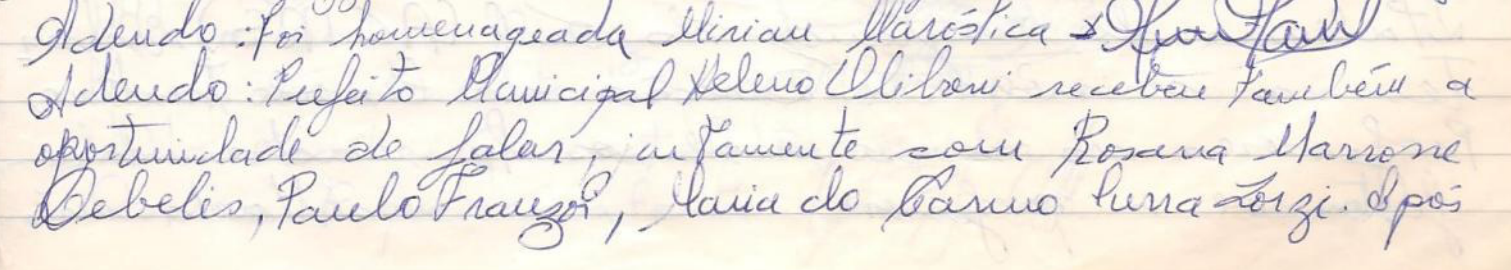 Adendo: Foi homenageada Mirian Maróstica
Adendo: Prefeito Municipal Heleno Oliboni recebeu também a
oportunidade de falar, juntamente com Rosana Marrone
Debelis, Paulo Franzoi, Maria do Carmo Zorzi. Após